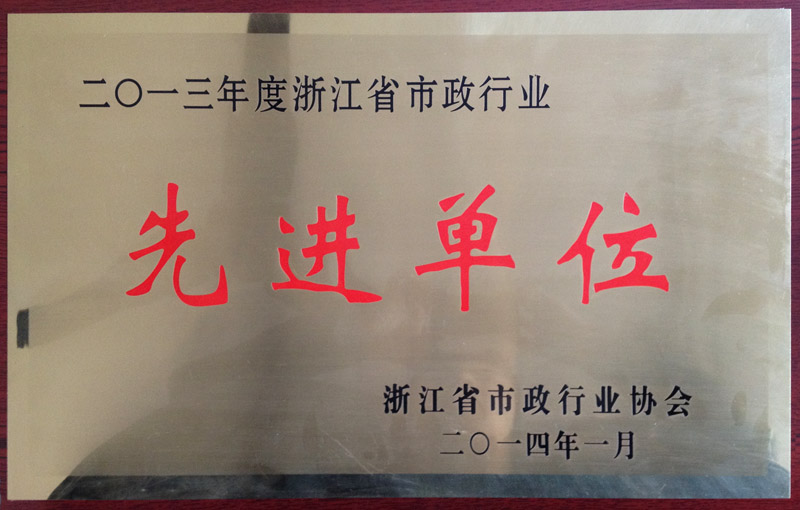 二〇一三年度浙江省市政行业
先进单位
浙江省市政行业协会
二〇一四年一月